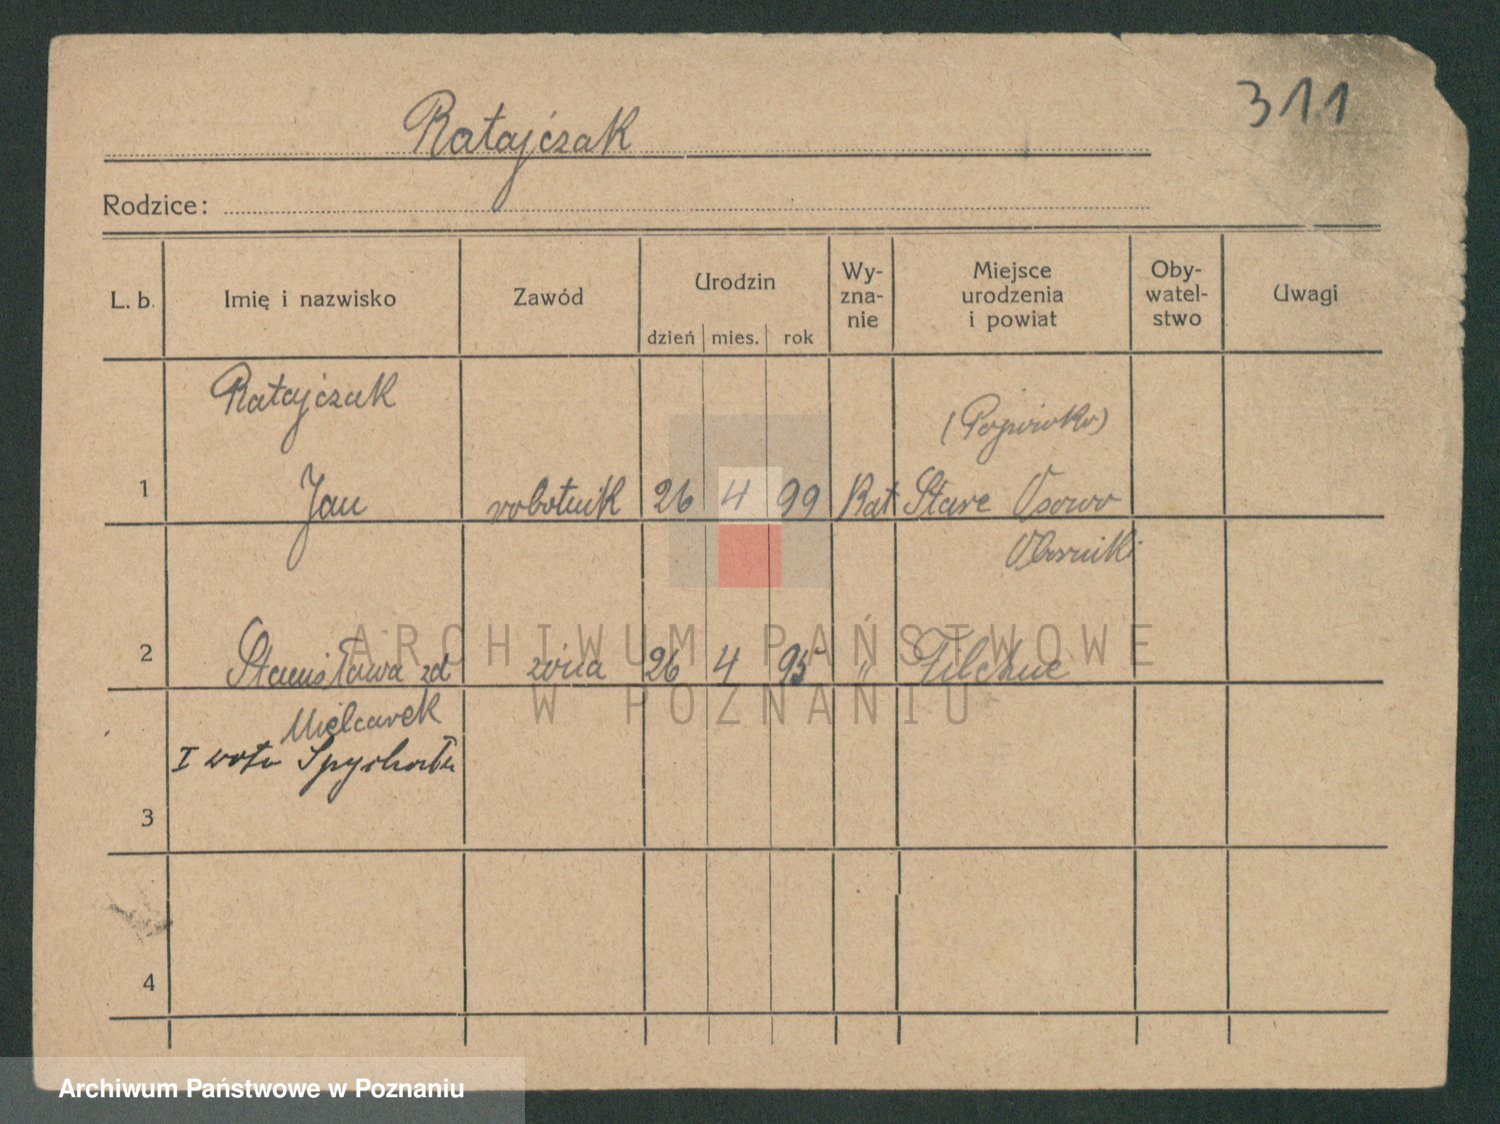 311
Ratajczak
Rodzice:
L. b. Imię i nazwisko Zawód Urodzin dzień mies. rok Wy-zna-nie Miejsce urodzenia i powiat Oby-watel-stwo Uwagi
Ratajczak
1 Jan robotnik 26 4 99 Kat Stare Osowo
Oborniki
2 Stanisława zd żona 26 4 95 " Filehne
Mielcarek
I voto Spychała
3
4
ARCHIWUM PAŃSTWOWE
W POZNANIU
Archiwum Państwowe w Poznaniu